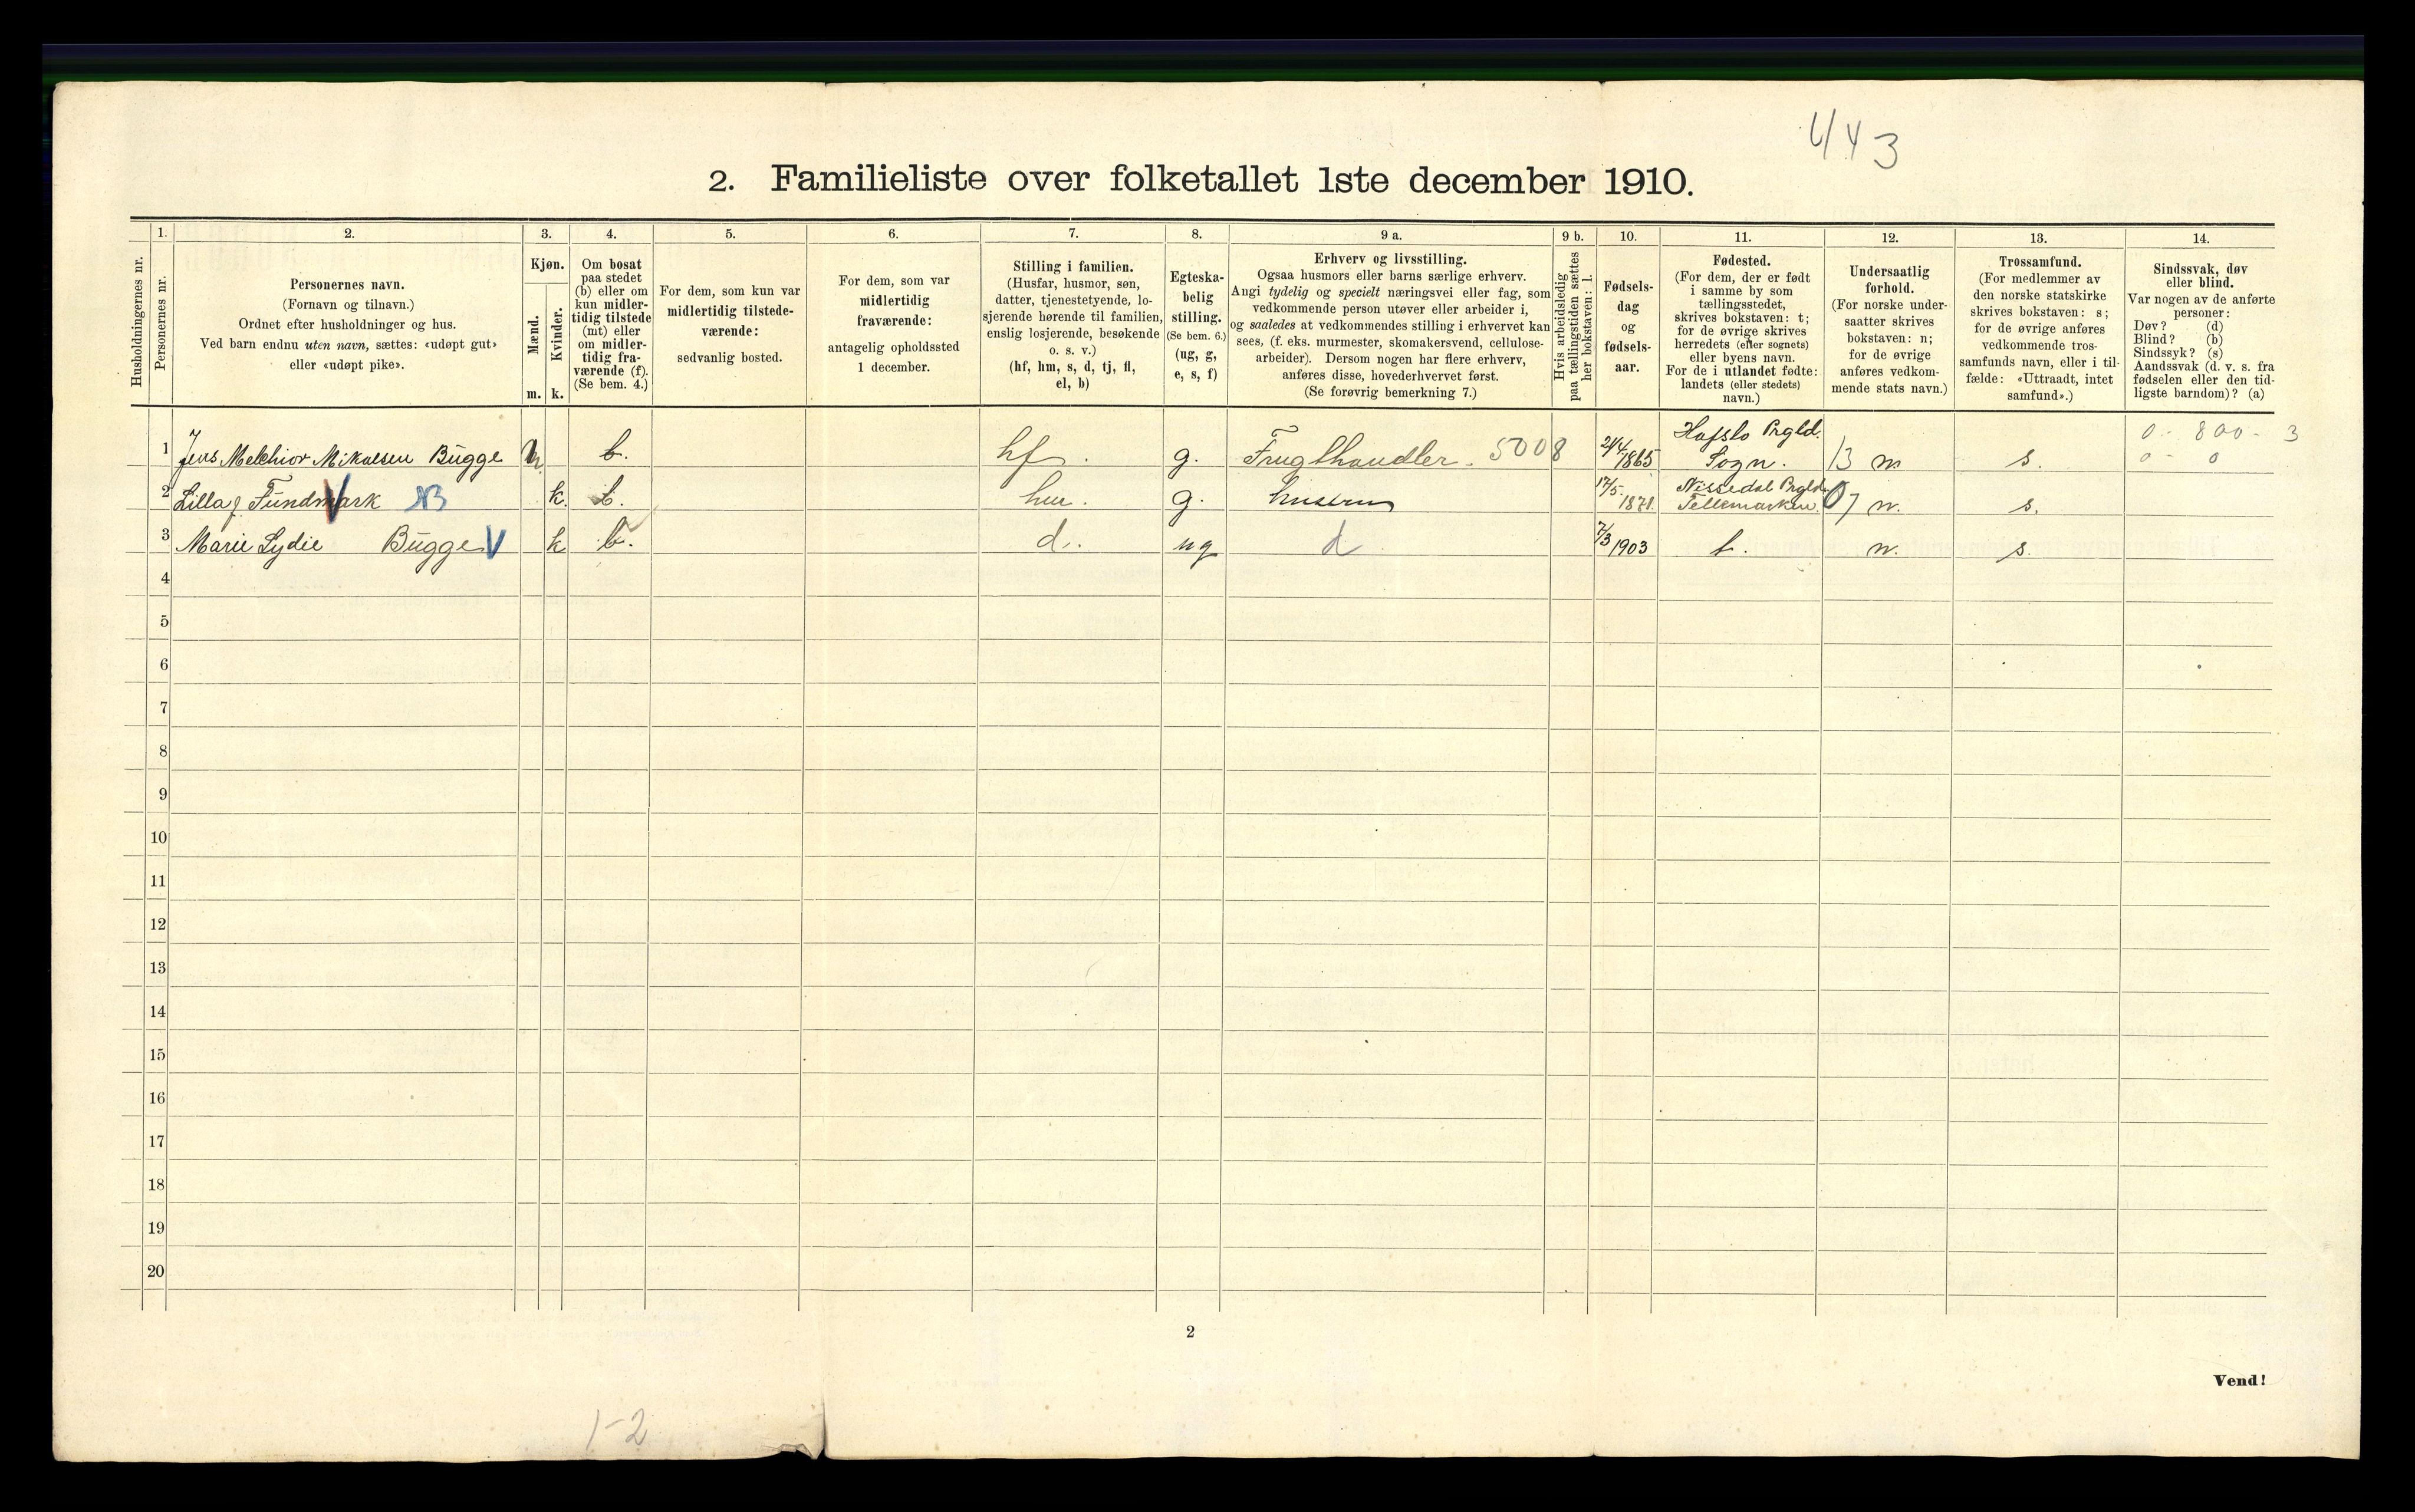 443
2. Familieliste over folketallet 1ste december 1910.
Husholdningernes nr.
1.
Personernes nr.
2.
Personernes navn.
(Fornavn og tilnavn.)
Ordnet efter husholdninger og hus.
Ved barn endnu uten navn, sættes: «udøpt gut»
eller «udøpt pike».
3.
Kjøn.
Mænd.
Kvinder.
m. k.
4.
Om bosat
paa stedet
(b) eller om
kun midler-
tidig tilstede
(mt) eller
om midler-
tidig fra-
værende (f).
(Se bem. 4.)
5.
For dem, som kun var
midlertidig tilstede-
værende:
sedvanlig bosted.
6.
For dem, som var
midlertidig
fraværende:
antagelig opholdssted
1 december.
7.
Stilling i familien.
(Husfar, husmor, søn,
datter, tjenestetyende, lo-
sjerende hørende til familien,
enslig losjerende, besøkende
o. s. v.)
(hf, hm, s, d, tj, fl,
el, b)
8.
Egteska-
belig
stilling.
(Se bem. 6.)
(ug, g,
e, s, f)
9 a.
Erhverv og livsstilling.
Ogsaa husmors eller barns særlige erhverv.
Angi tydelig og specielt næringsvei eller fag, som
vedkommende person utøver eller arbeider i,
og saaledes at vedkommendes stilling i erhvervet kan
sees, (f. eks. murmester, skomakersvend, cellulose-
arbeider). Dersom nogen har flere erhverv,
anføres disse, hovederhvervet først.
(Se forøvrig bemerkning 7.)
9 b.
Hvis arbeidsledig
paa tællingstiden sættes
her bokstaven: l.
10.
Fødsels-
dag
og
fødsels-
aar.
11.
Fødested.
(For dem, der er født
i samme by som
tællingsstedet,
skrives bokstaven: t;
for de øvrige skrives
herredets (efter sognets)
eller byens navn.
For de i utlandet fødte:
landets (eller stedets)
navn.)
12.
Undersaatlig
forhold.
(For norske under-
saatter skrives
bokstaven: n;
for de øvrige
anføres vedkom-
mende stats navn.)
13.
Trossamfund.
(For medlemmer av
den norske statskirke
skrives bokstaven: s;
for de øvrige anføres
vedkommende tros-
samfunds navn, eller i til-
fælde: «Uttraadt, intet
samfund».)
14.
Sindssvak, døv
eller blind.
Var nogen av de anførte
personer:
Døv? (d)
Blind? (b)
Sindssyk? (s)
Aandssvak (d. v. s. fra
fødselen eller den tid-
ligste barndom)? (a)
Hafslo Prgld. 0 - 800 - 3
1 Jens Melchior Mikalsen Bugge m b. hf. g. Frugthandler. 5008 21/4 1865 Sogn. 13 n s. 0 - 0
2 Lilla f Fundmark NB k. b. hm. g. hustru 17/5. 1871. Nissedal Prgld. Tellemarken. 07 n. s.
3 Marie Lydie Bugge V k b. d. ug d 7/3 1903 t. n. s.
4
5
6
7
8
9
10
11
12
13
14
15
16
17
18
19
20
2
Vend!
1-2